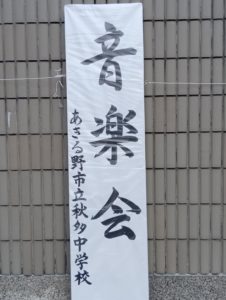 音楽会
あきる野市立秋多中学校